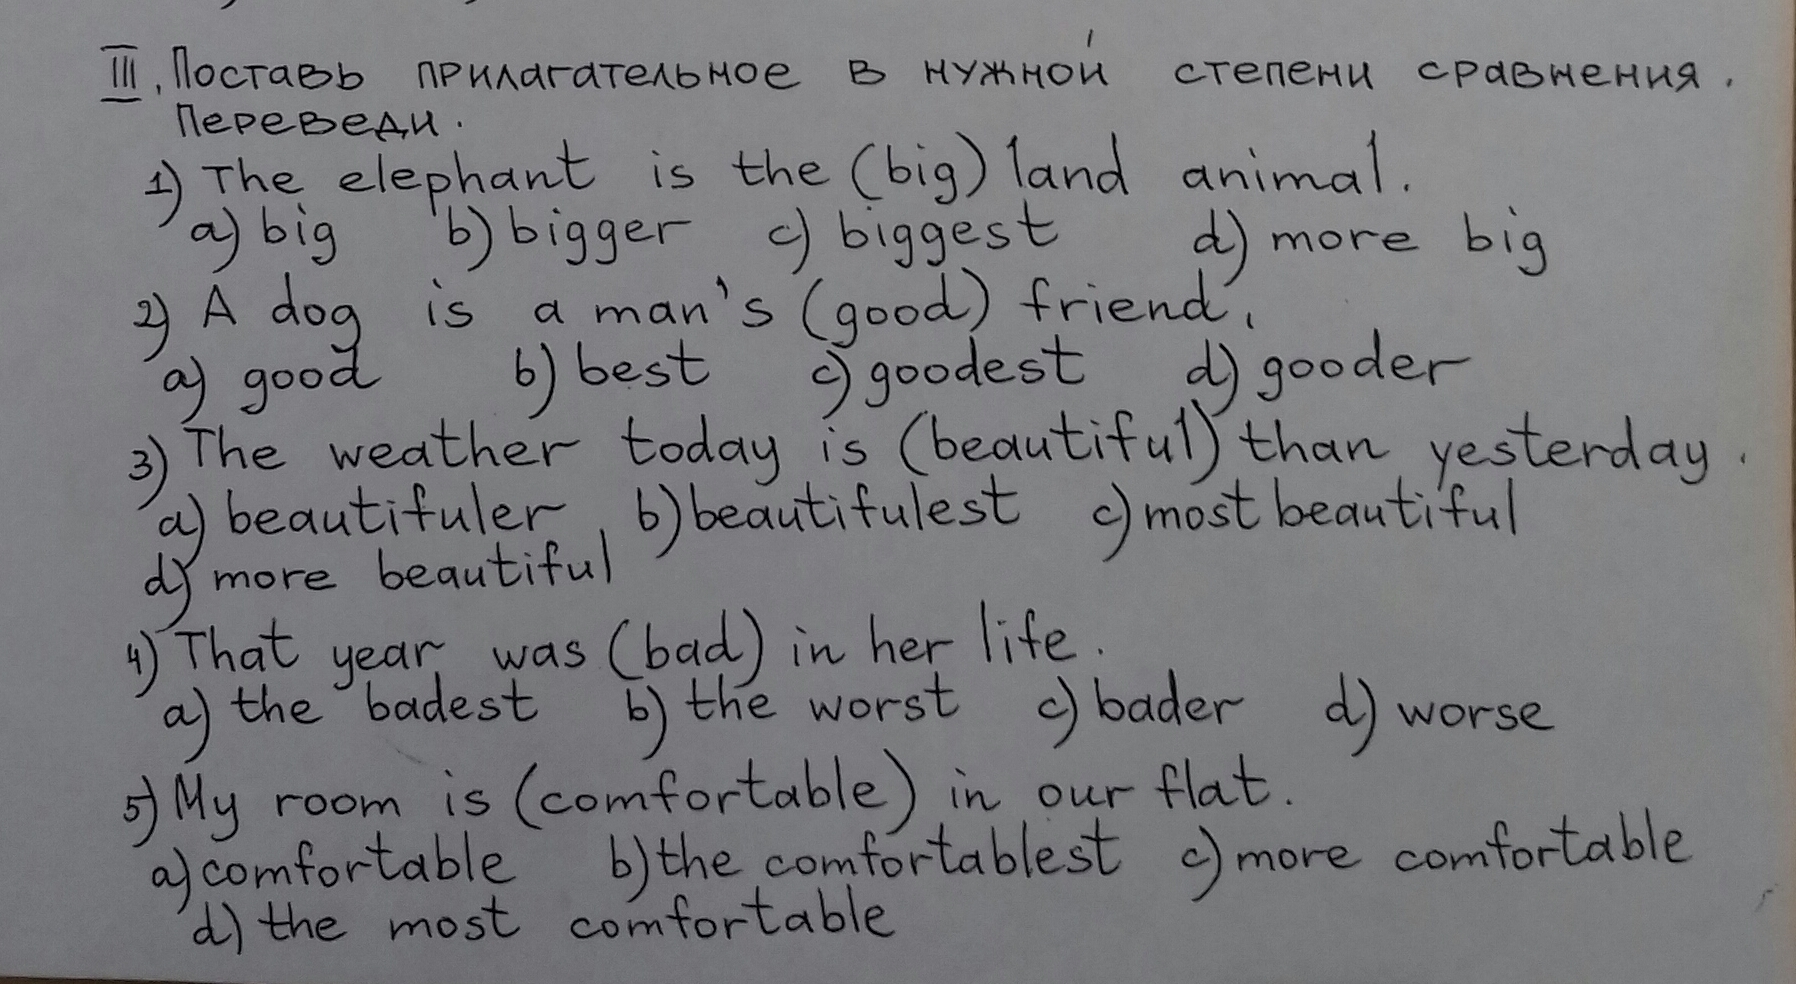 III. Поставь прилагательное в нужной степени сравнения.
Переведи.
1) The elephant is the (big) land animal.
a) big b) bigger c) biggest d) more big
2) A dog is a man's (good) friend.
a) good b) best c) goodest d) gooder
3) The weather today is (beautiful) than yesterday.
a) beautifuler b) beautifulest c) most beautiful
d) more beautiful
4) That year was (bad) in her life.
a) the badest b) the worst c) bader d) worse
5) My room is (comfortable) in our flat.
a) comfortable b) the comfortablest c) more comfortable
d) the most comfortable